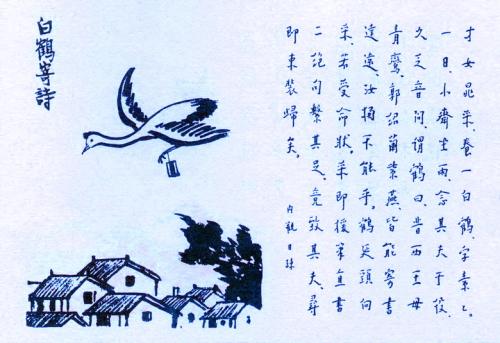 白鶴寄詩
才女晁采、養一白鶴、字素々。
一日、小齋坐雨、念其夫于役、
久乏音問、謂鶴曰、昔西王母
青鸞、郭紹蘭紫燕、皆能寄書
達遠、汝獨不能乎。鶴延頸向
采、若受命狀。采即援筆直書
二絶句繫其足、竟致其夫、尋
即束裝歸矣。
内觀日疏